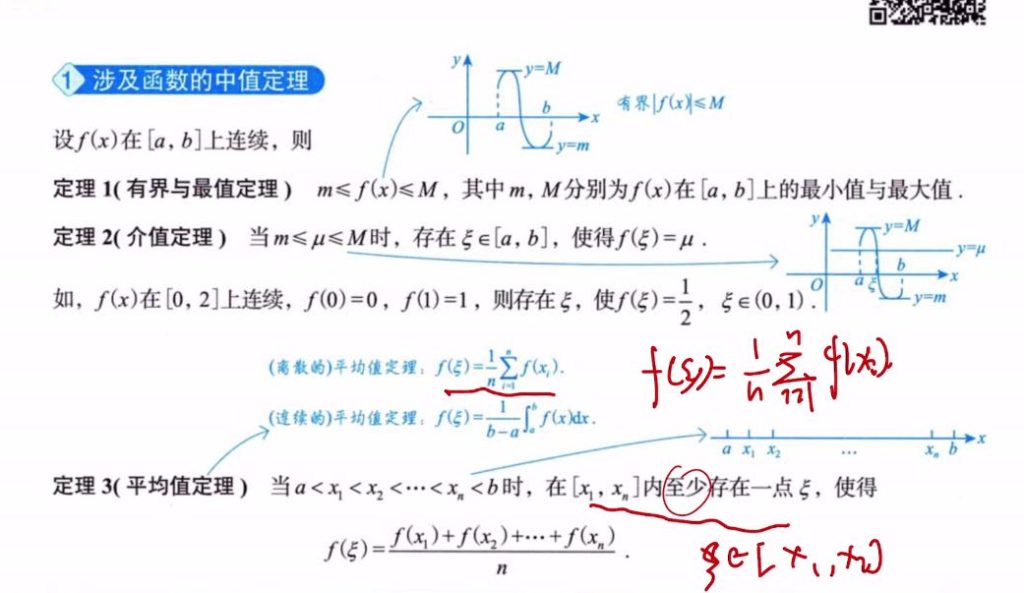 1 涉及函数的中值定理
y
y=M
b
O
a
x
y=m
有界|f(x)|≤M
设f(x)在[a, b]上连续，则
定理 1(有界与最值定理) m≤f(x)≤M，其中m, M分别为f(x)在[a, b]上的最小值与最大值.
定理 2(介值定理) 当m≤μ≤M时，存在ξ∈[a, b]，使得f(ξ)=μ.
y
y=M
y=μ
b
O
a
ξ
x
y=m
如，f(x)在[0, 2]上连续，f(0)=0，f(1)=1，则存在ξ，使f(ξ)=1/2，ξ∈(0, 1).
(离散的)平均值定理：f(ξ)=1/n ∑_{i=1}^{n} f(x_i).
f(ξ)=1/n ∑_{i=1}^{n} f(x_i).
(连续的)平均值定理：f(ξ)=1/(b-a) ∫_a^b f(x)dx.
a x₁ x₂ … xₙ b x
定理 3(平均值定理) 当a<x₁<x₂<⋯<xₙ<b时，在[x₁, xₙ]内至少存在一点ξ，使得
f(ξ)=(f(x₁)+f(x₂)+⋯+f(xₙ))/n.
ξ∈[x₁, x₂]